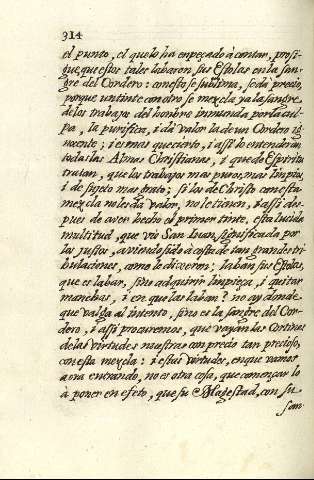 314
el punto, el que lo ha enpeçado à cantar, prosi-
gue, que estos tales labaron sus Estolas en la san-
gre del Cordero: con esto se sublima, se dà precio,
porque un tinte con otro se mezcla, ya la sangre
de los trabajos del hombre inmunda por la cul-
pa, la purifica, i dà valor la de un Cordero ig-
nocente; i es mas que cierto, i assi lo entenderàn
todas las Almas Christianas, i que de Espiritu
tratan, que los trabajos mas puros, mas limpios,
i de sujeto mas grato; si la de Christo con esta
mezcla no les da valor, no le tienen, i assi des-
pues de aver hecho el primer tinte, esta lucida
multitud, que viò San Iuan, significada por
los justos, aviendo sido à costa de tan grandes tri-
bulaciones, como le dixeron; laban sus Estolas,
que es labar, sino adquirir limpieça, i quitar
manchas, i en que las laban? no ay donde
que valga al intento, sino es la sangre del Cor-
dero, i assi procuremos, que vayan las Cortinas
de las virtudes nuestras con precio tan precioso,
con esta mezcla: i estas virtudes, en que vamos
aora entrando, no es otra cosa, que començar lo
à poner en efeto, que su Magestad, con su
san-